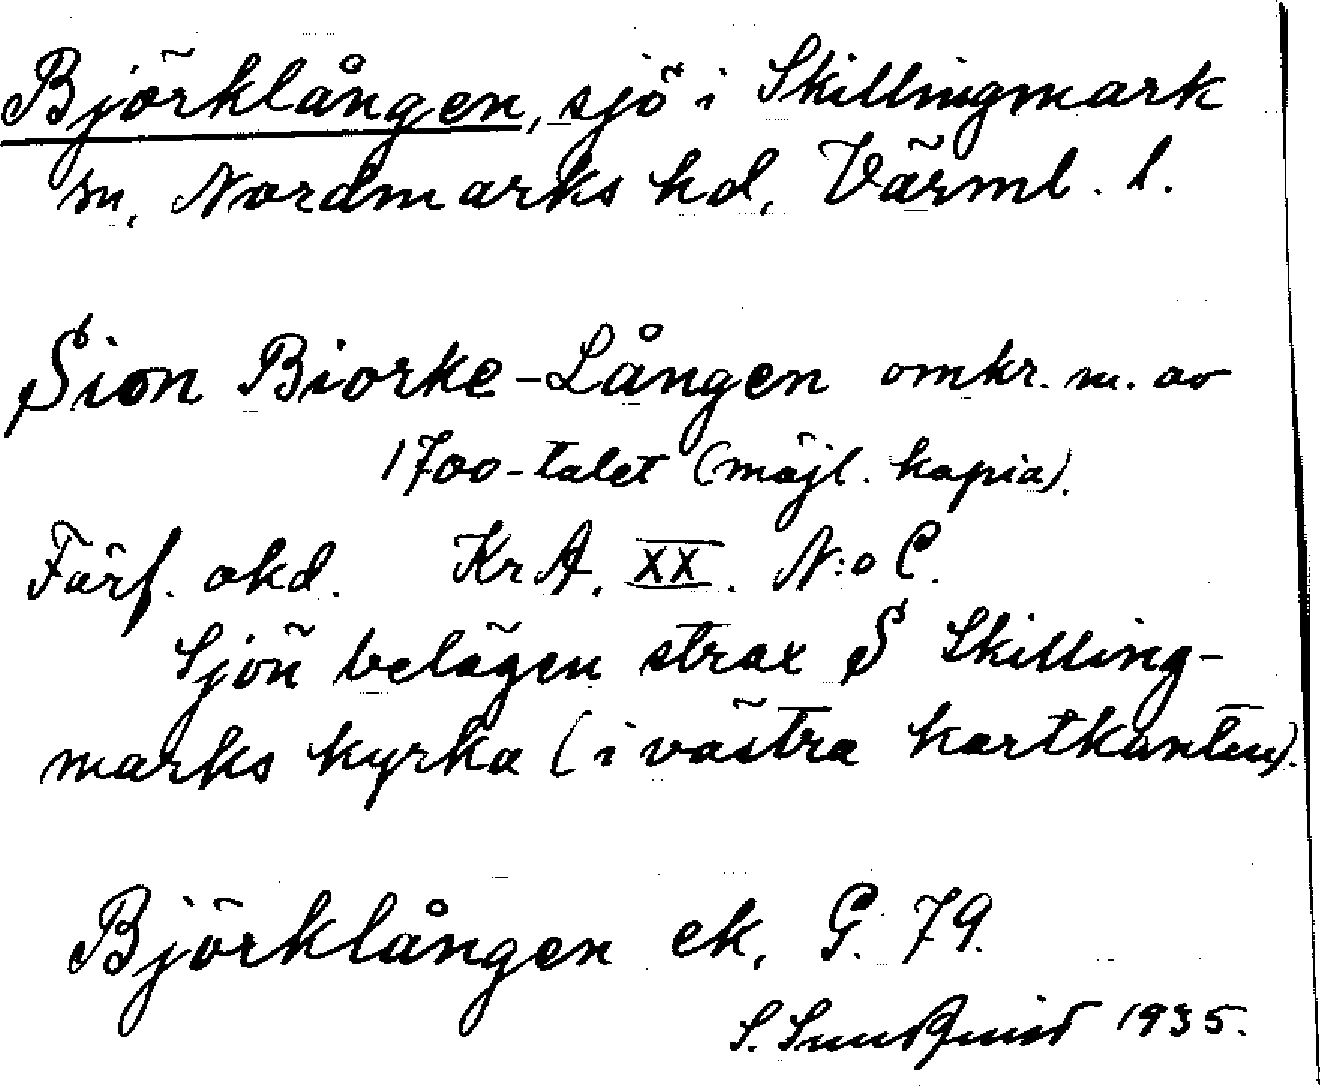 Björklången, sjö i Skillingmark
sn, Nordmarks hd, Värml. l.
Sion Biorke-Lången omkr. m. av
1700-talet (möjl. kopia).
Förf. okd. KrA. XX. N:o C.
Sjön belägen strax S Skilling-
marks kyrka (i västra kartkanten).
Björklången ek. G. 79.
S. 1935.